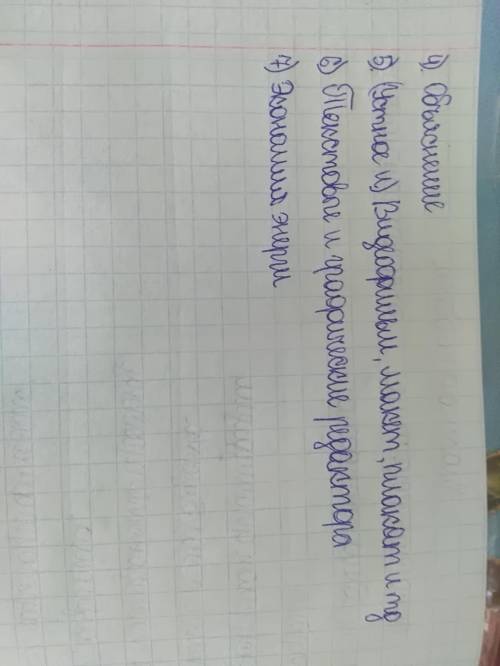 4) Объяснение
5) (Устное и) Видеофильм, макет, плакат и тд
6) Текстовые и графические редактора
7) Экономия энергии